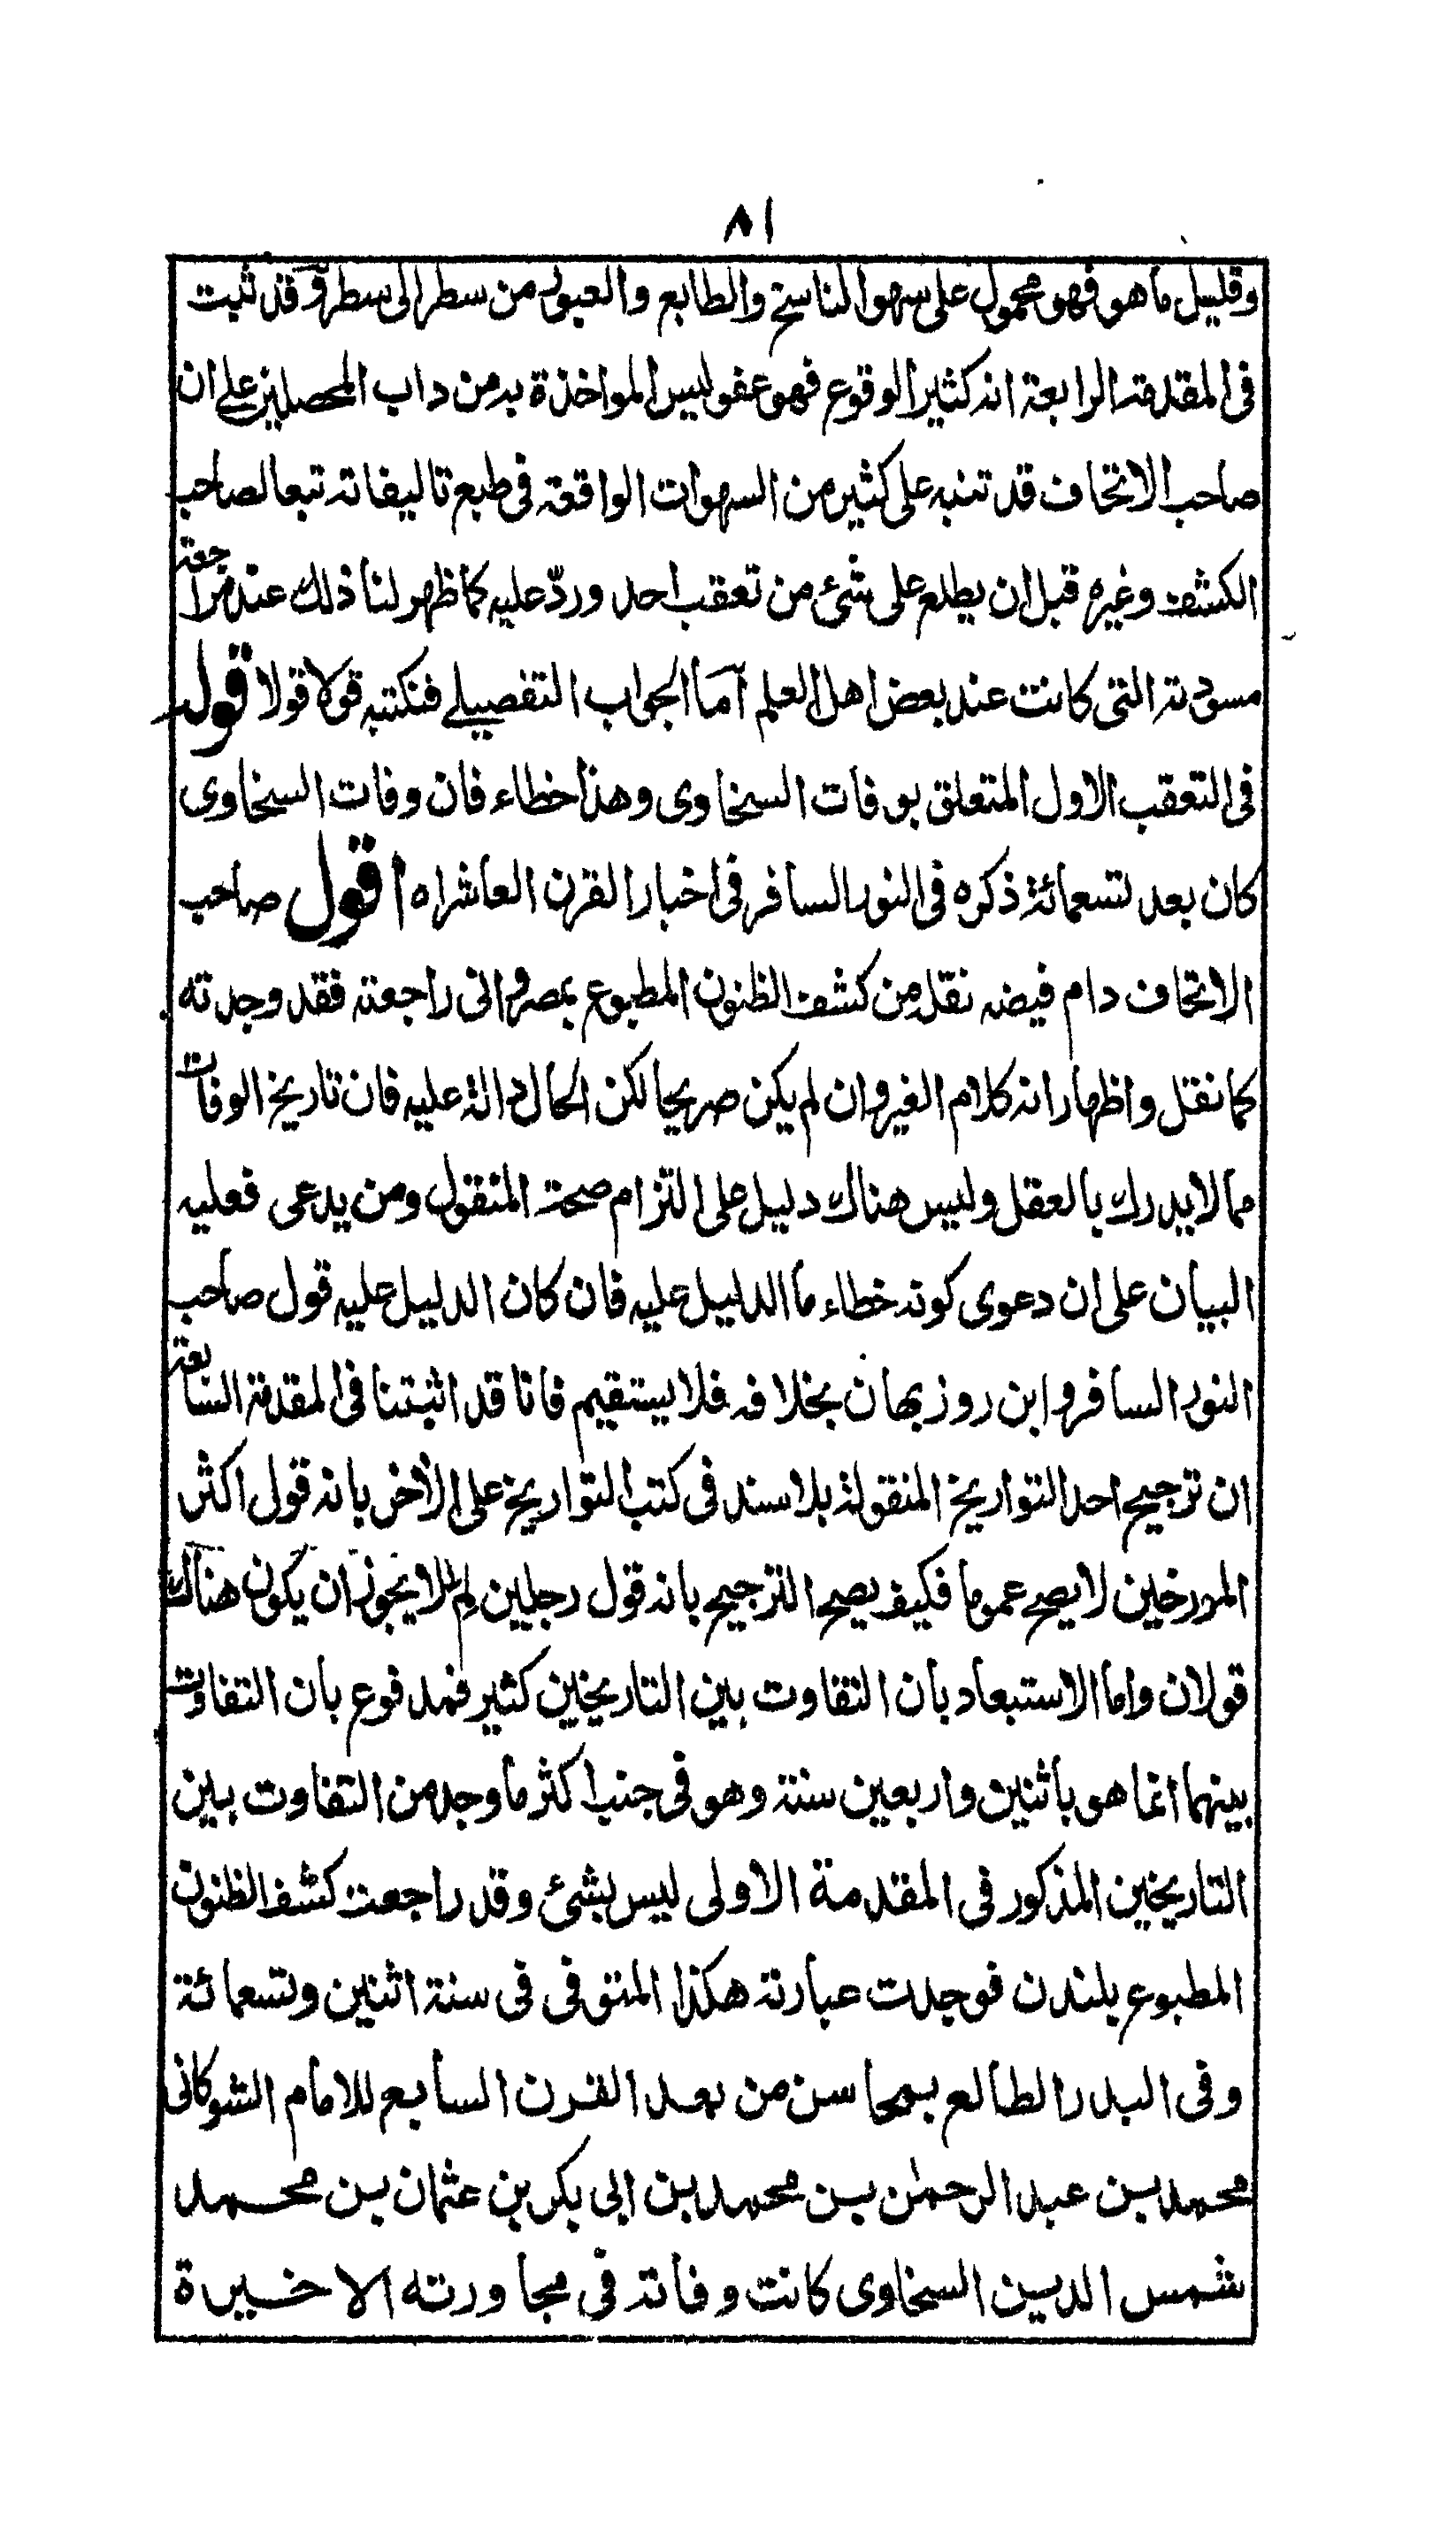 ٨١
وقليل ما هو فهو محمول على سهو الناسخ والطابع والعبور من سطر الى سطر وقد ثبت
فى المقدمة الرابعة انه كثير الوقوع فهو عفو ليس المواخذة به من داب المحصلين على ان
صاحب الاتحاف قد تنبه على كثير من السهوات الواقعة فى طبع تاليفاته تبعا لصاحب
الكشف وغيره قبل ان يطلع على شئ من تعقب احد وردّ عليه كما ظهر لنا ذلك عند مراجعة
مسودته التى كانت عند بعض اهل العلم أما الجواب التفصيلے فنكتبه قولا قولا قوله
فى التعقب الاول المتعلق بوفات السخاوى وهذا خطاء فان وفات السخاوى
كان بعد تسعمائة ذكره فى النور السافر فى اخبار القرن العاشر اه اقول صاحب
الاتحاف دام فيضه نقله من كشف الظنون المطبوع بمصر وانى راجعته فقد وجدته
كما نقل واظهار انه كلام الغير وان لم يكن صريحا لكن الحال دالة عليه فان تاريخ الوفات
مما لا يدرك بالعقل وليس هناك دليل على التزام صحة المنقول ومن يدعى فعليه
البيان على ان دعوى كونه خطاء ما الدليل عليه فان كان الدليل عليه قول صاحب
النور السافر وابن روزبهان بخلافه فلا يستقيم فانا قد اثبتنا فى المقدمة السابعة
ان ترجيح احد التواريخ المنقولة بلا سند فى كتب التواريخ على الأخر بانه قول اكثر
المورخين لا يصح عموما فكيف يصح الترجيح بانه قول رجلين لم لا يجوز ان يكون هناك
قولان واما الاستبعاد بان التفاوت بين التاريخين كثير فمدفوع بان التفاوت
بينهما انما هو باثنين واربعين سنة وهو فى جنب اكثر ما وجد من التفاوت بين
التاريخين المذكور فى المقدمة الاولى ليس بشئ وقد راجعت كشف الظنون
المطبوع بلندن فوجدت عبارته هكذا المتوفى فى سنة اثنين وتسعمائة
وفى البدر الطالع بمحاسن من بعد القرن السابع للامام الشوكانى
محمد بن عبد الرحمٰن بن محمد بن ابى بكر بن عثمان بن محمد
شمس الدين السخاوى كانت وفاته فى مجاورته الاخيرة